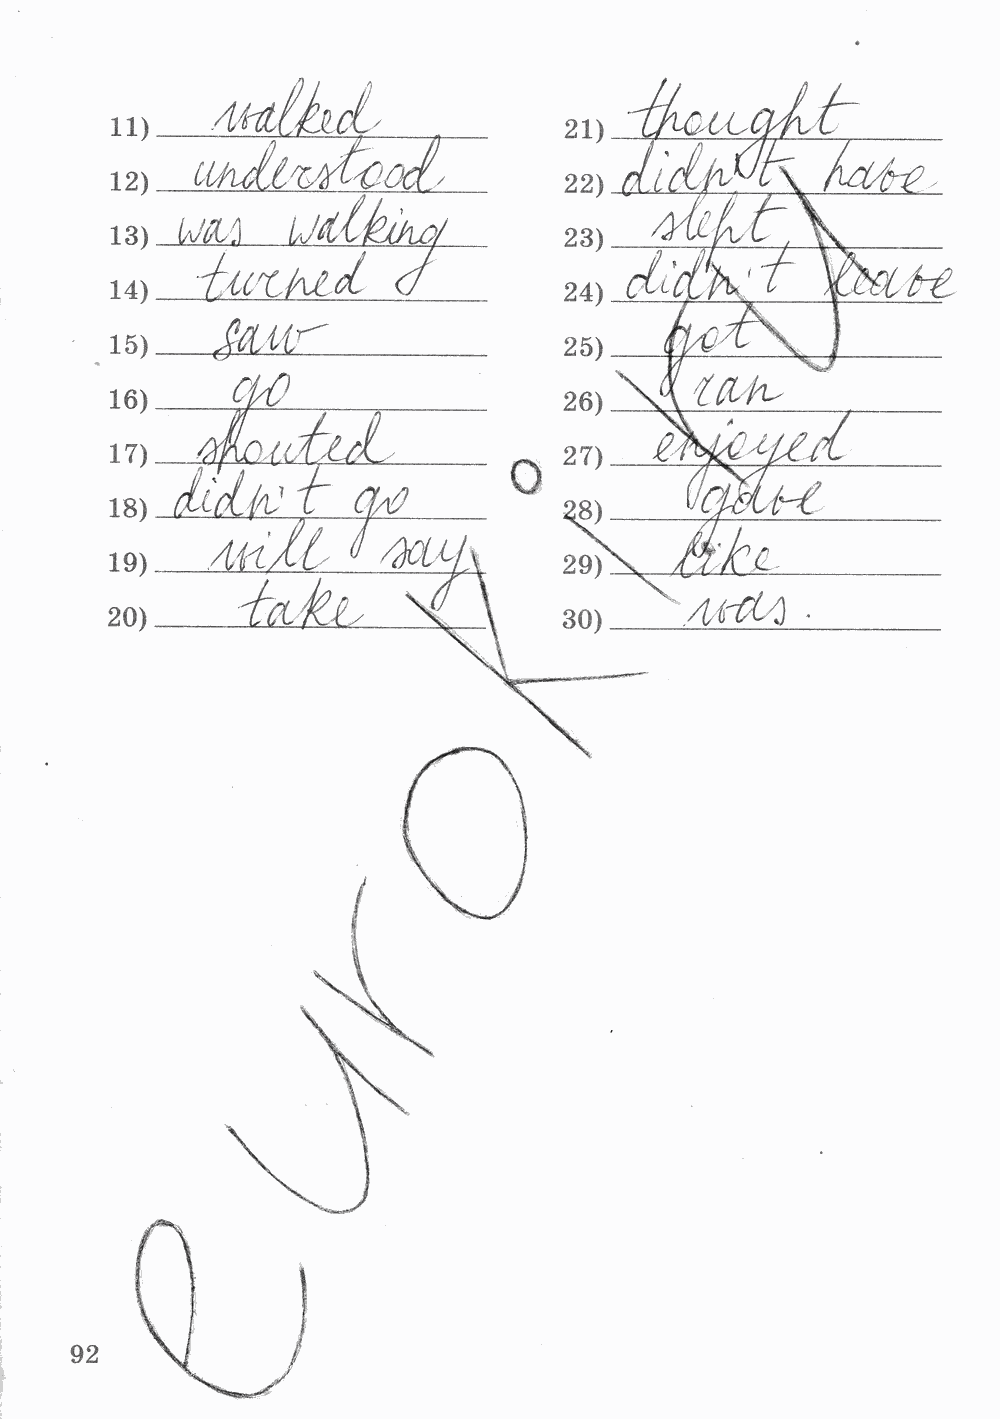 11) walked
12) understood
13) was walking
14) turned
15) saw
16) go
17) shouted
18) didn't go
19) will say
20) take
21) thought
22) didn't have
23) slept
24) didn't leave
25) got
26) ran
27) enjoyed
28) gave
29) like
30) was.
eurokI.ru
92